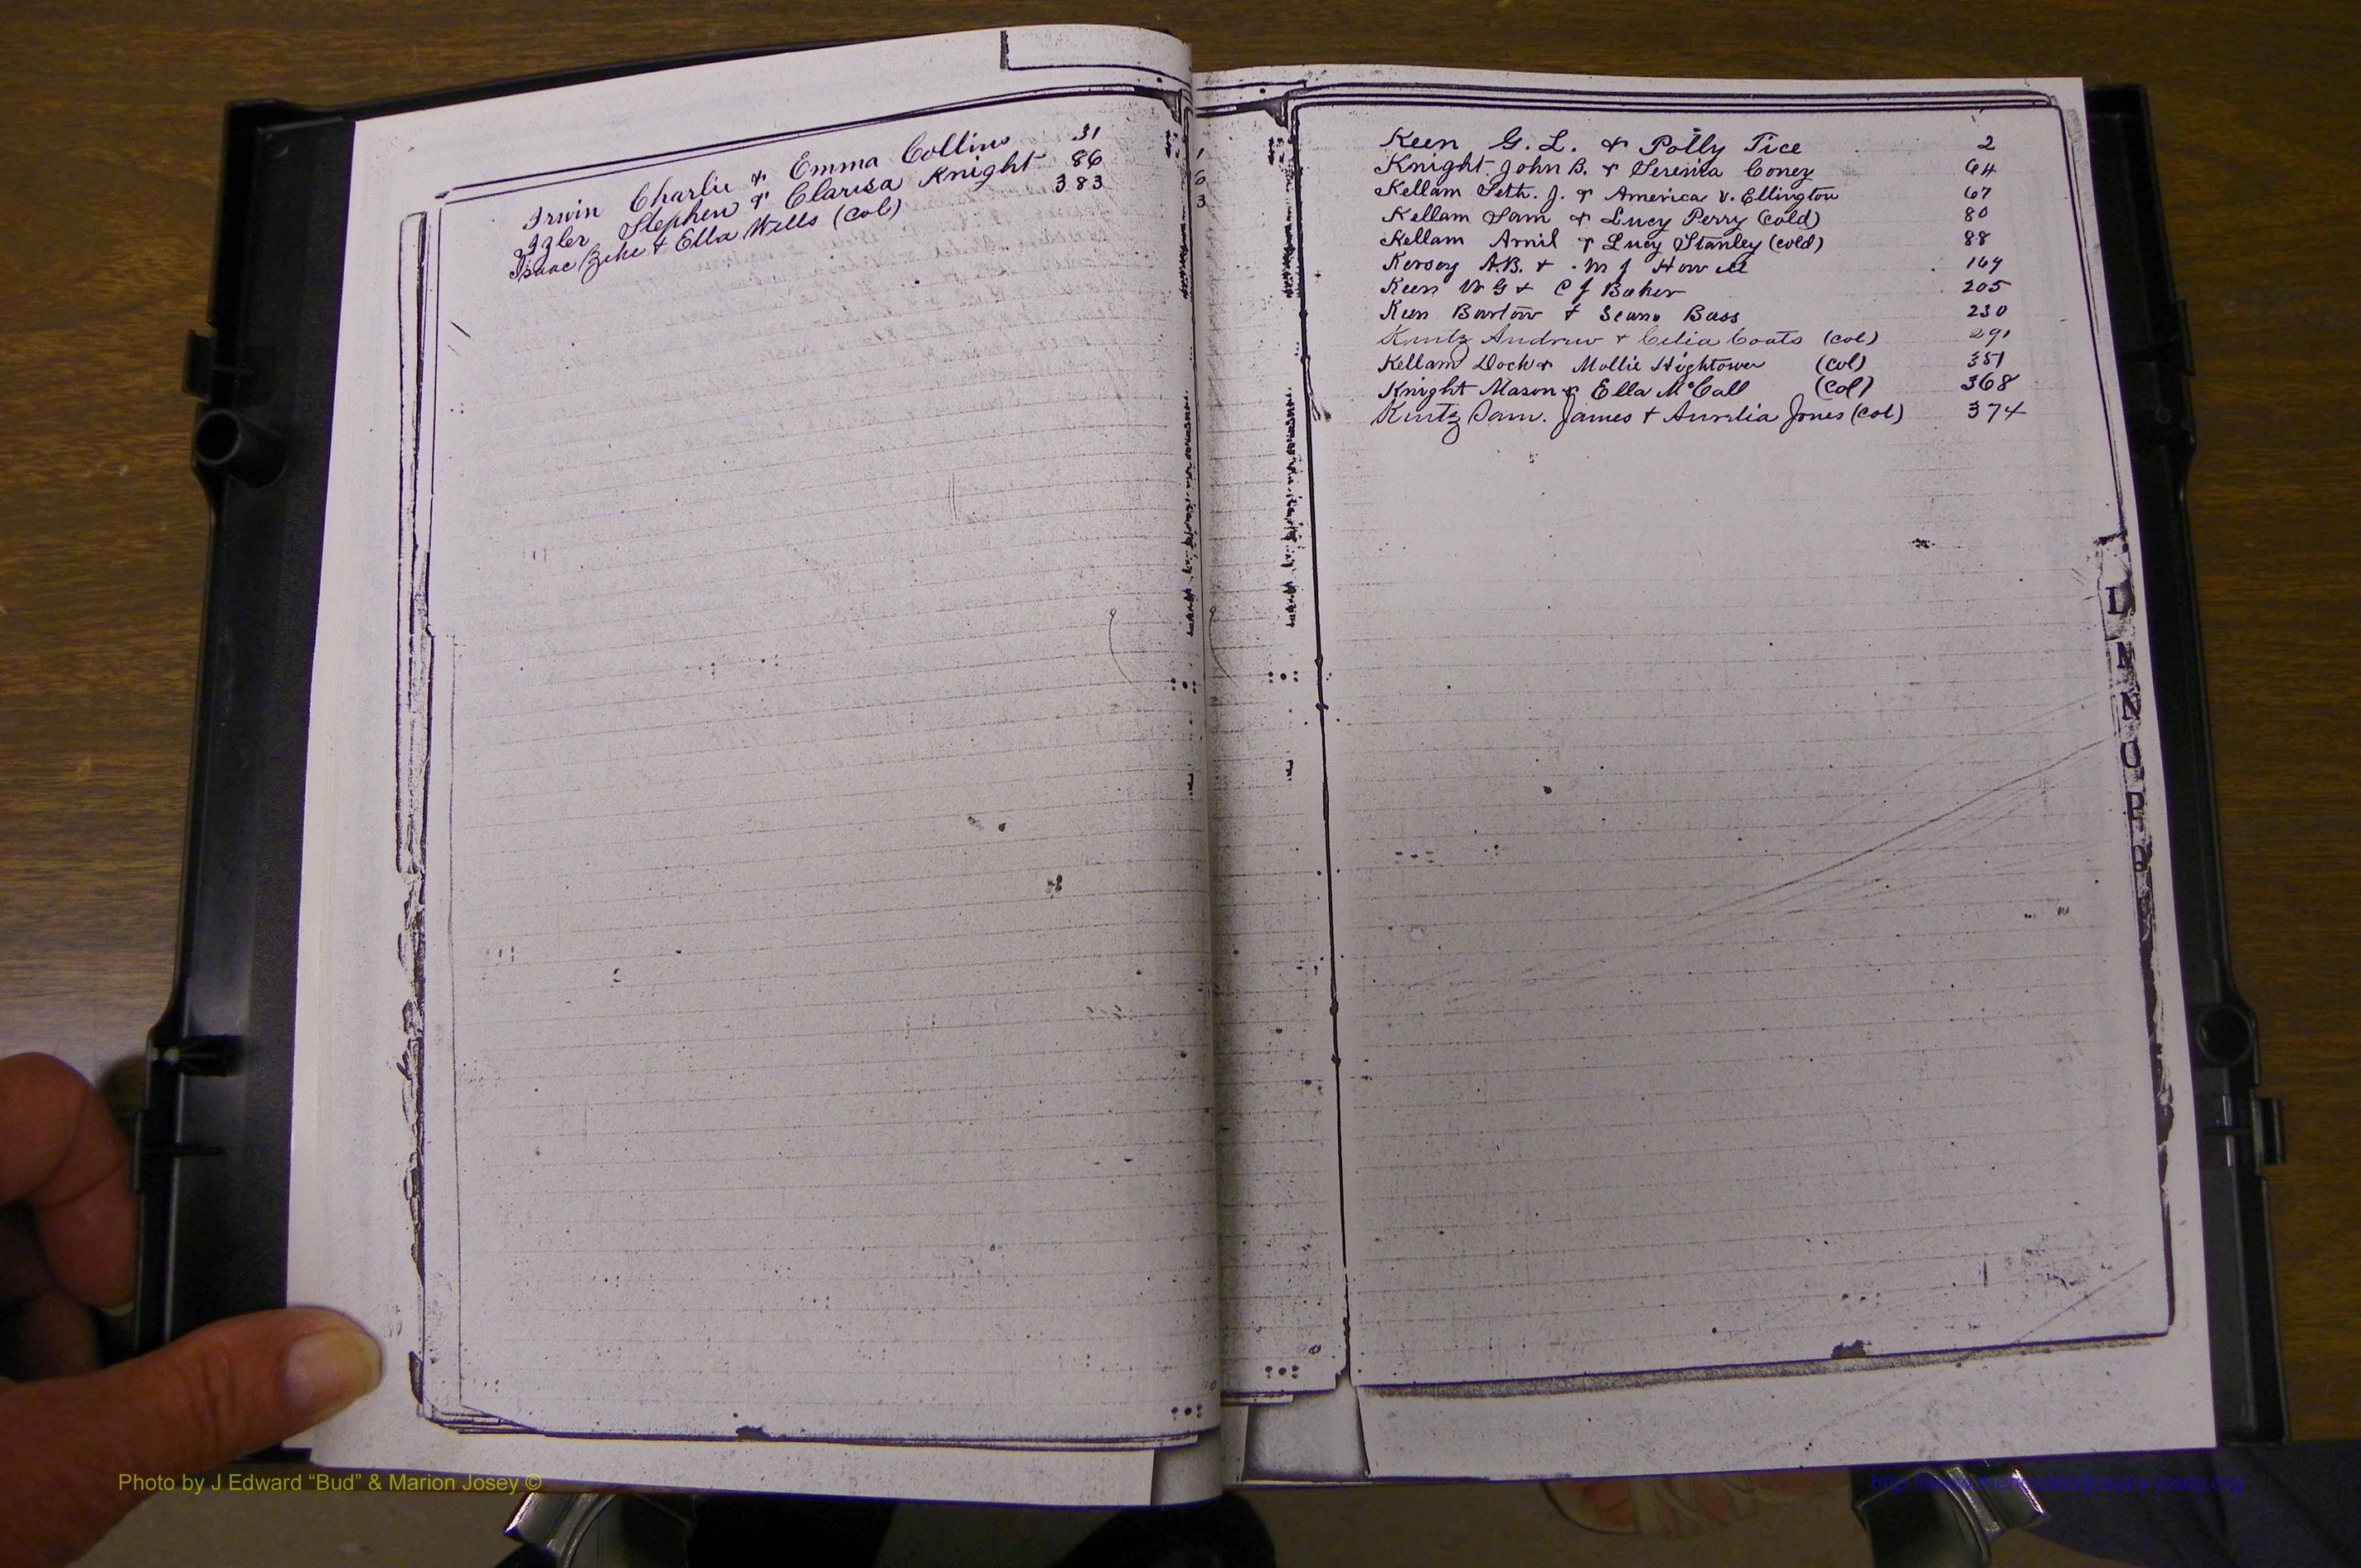 Irwin Charlie & Emma Collins 31
Igler Stephen & Clarisa Knight 86
Isaac Zeke & Ella Wells (Col) 383
Keen G. L. & Polly Tice 2
Knight John B. & Serenia Coney 64
Kellam Seth. J. & America V. Ellington 67
Kellam Sam & Lucy Perry (Cold) 80
Kellam Arnil & Lucy Stanley (Cold) 88
Kersey A.B. & M J Howell 169
Keen W G & C J Baker 205
Keen Barlow & Bass 230
Kuntz Andrew & Celia Coats (Col) 291
Kellam Dock & Mollie Hightower (Col) 351
Knight Mason & Ella McCall (Col) 368
Kuntz Sam. James & Aurelia Jones (Col) 374
L
M
N
O
P
Photo by J Edward “Bud” & Marion Josey ©
http://www.thehouseofjossey-josey.org